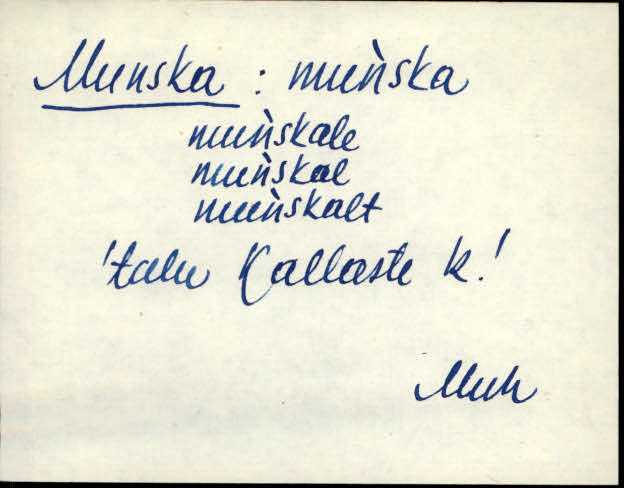 Munska : muǹska
muǹskale
muǹskal
muǹskalt
'talu Kallaste k!
Muh